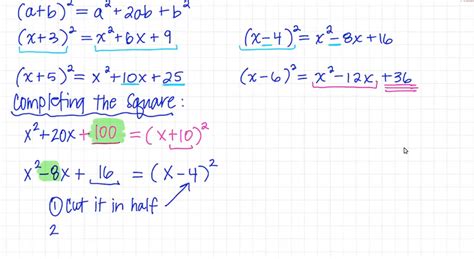 (a+b)² = a² + 2ab + b²
(x+3)² = x² + 6x + 9
(x-4)² = x² - 8x + 16
(x+5)² = x² + 10x + 25
(x-6)² = x² - 12x + 36
Completing the Square:
x² + 20x + 100 = (x+10)²
x² - 8x + 16 = (x-4)²
① Cut it in half
2